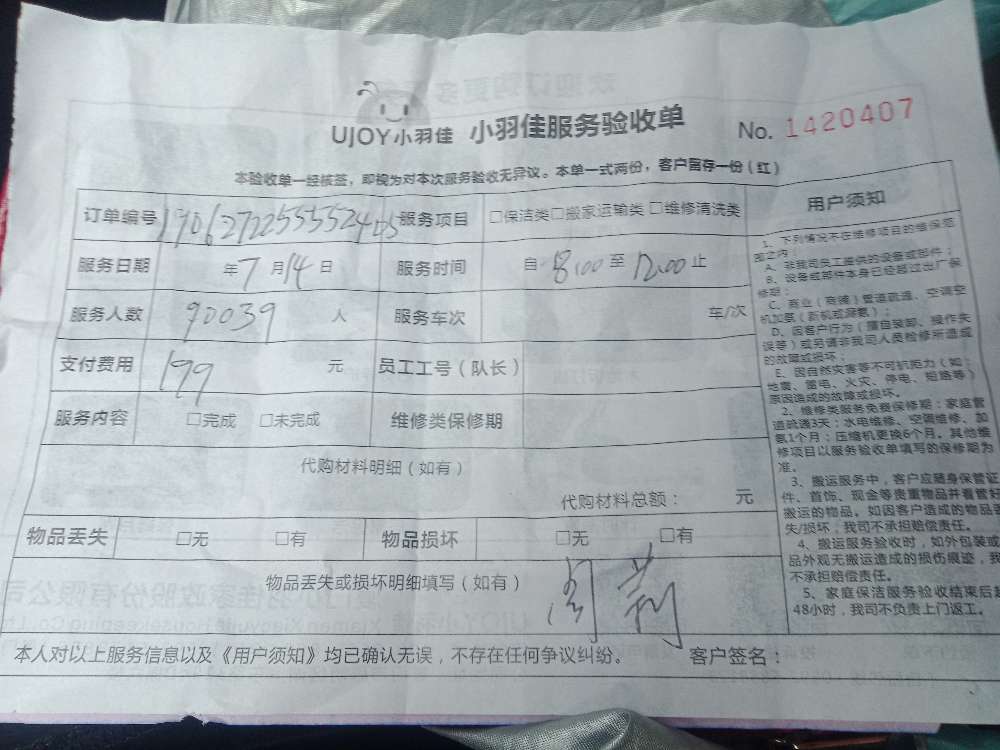 UJOY小羽佳 小羽佳服务验收单 No. 1420407
本验收单一经核签，即视为对本次服务验收无异议。本单一式两份，客户留存一份（红）
订单编号 服务项目 □保洁类□搬家运输类 □维修清洗类
服务日期 年7月14日 服务时间 自 8:00 至 12:00 止
服务人数 90039 人 服务车次 车/次
支付费用 199 元 员工工号（队长）
服务内容 □完成 □未完成 维修类保修期
代购材料明细（如有）
代购材料总额： 元
物品丢失 □无 □有 物品损坏 □无 □有
物品丢失或损坏明细填写（如有）
周莉
本人对以上服务信息以及《用户须知》均已确认无误，不存在任何争议纠纷。 客户签名：
用户须知
1、下列情况不在维修项目的维保范
围之内：
A、非我司员工提供的设备或部件；
B、设备或部件本身已经超过出厂保
修期；
C、商业（商铺）管道疏通、空调空
机加氨（新机或漏氨）；
D、因客户行为（擅自装卸、操作失
误等）或另请非我司人员检修所造成
的故障或损坏；
E、因自然灾害等不可抗距力（如：
地震、雷电、火灾、停电、短路等）
原因造成的故障或损坏。
2、维修类服务免费保修期：家庭管
道疏通3天；水电维修、空调维修、加
氨1个月；压缩机更换6个月。其他维
修项目以服务验收单填写的保修期为
准。
3、搬运服务中，客户应随身保管证
件、首饰、现金等贵重物品并看管好
搬运的物品。如因客户造成的物品丢
失/损坏，我司不承担赔偿责任。
4、搬运服务验收时，如外包装或
品外观无搬运造成的损伤痕迹，我
不承担赔偿责任。
5、家庭保洁服务验收结束后超
48小时，我司不负责上门返工。